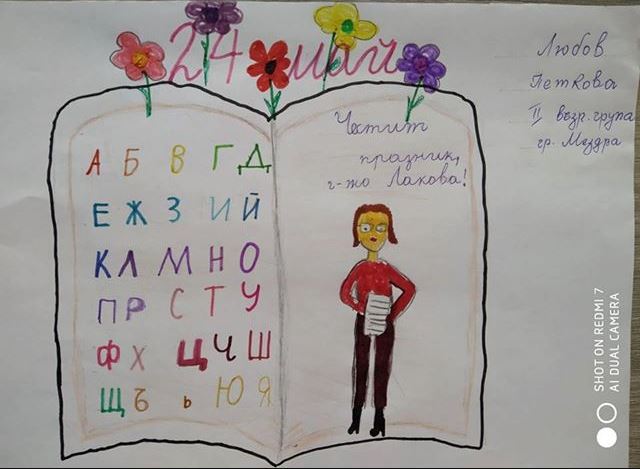 24 май
Любов
Петкова
II възр. група
гр. Мездра
А Б В Г Д
Е Ж З И Й
К Л М Н О
П Р С Т У
Ф Х Ц Ч Ш
Щ Ъ ь Ю Я
Честит
празник,
г-жо Лакова!
SHOT ON REDMI 7
AI DUAL CAMERA